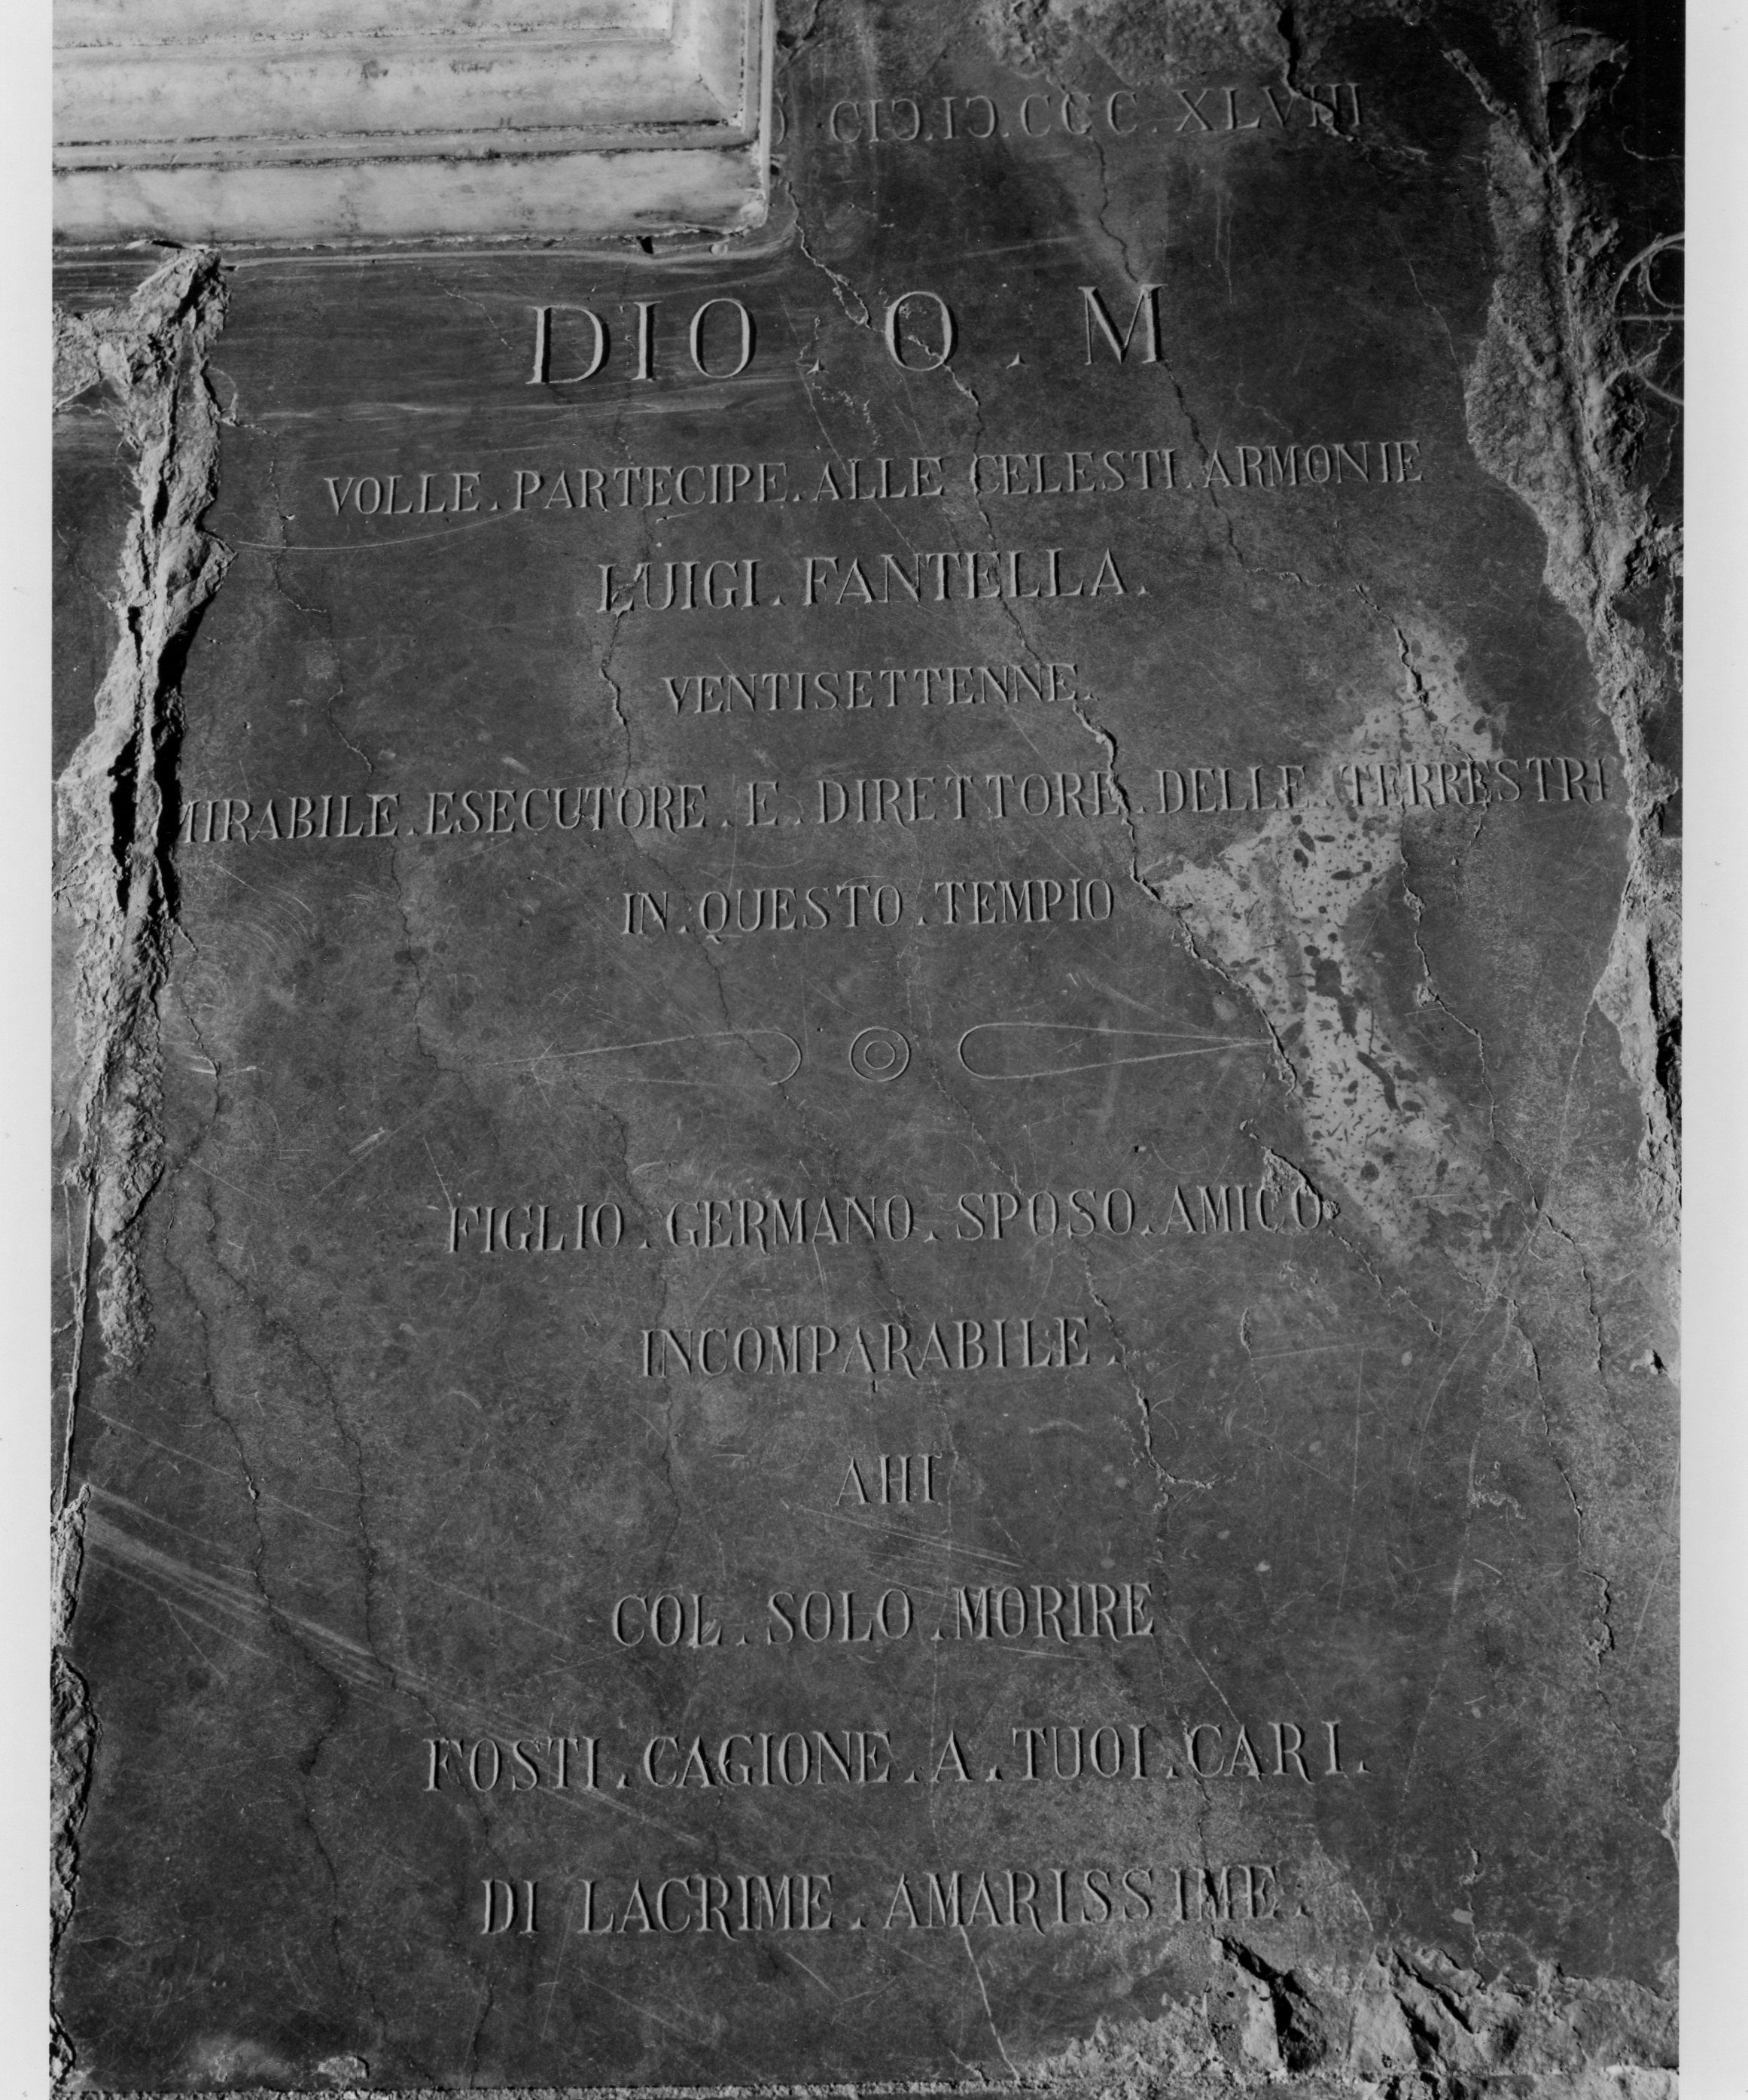 CIƆ.IƆ.CCC.XLVIII
DIO . O . M
VOLLE . PARTECIPE . ALLE CELESTI . ARMONIE
LUIGI . FANTELLA .
VENTISETTENNE .
MIRABILE . ESECUTORE . E . DIRETTORE . DELLE . TERRESTRI
IN . QUESTO . TEMPIO
FIGLIO . GERMANO . SPOSO . AMICO
INCOMPARABILE .
AHI
COL . SOLO . MORIRE
FOSTI . CAGIONE . A . TUOI . CARI .
DI LACRIME . AMARISSIME .